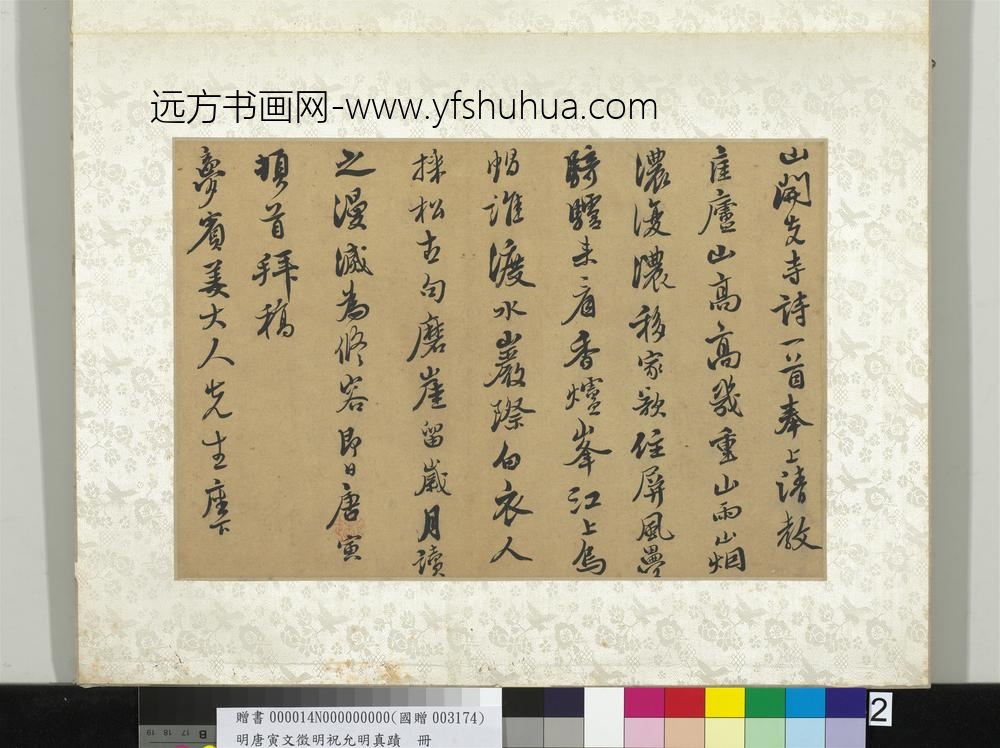 远方书画网-www.yfshuhua.com
山開先寺詩一首奉上請教
匡廬山高高幾重山雨山烟
濃復濃移家欲住屏風疊
騎驢來看香爐峯江上烏
帽誰渡水巖際白衣人
採松古句磨崖留歲月讀
之漫滅為修容即日唐寅
頓首拜稿
夢賓姜大人先生座下
2
贈書 000014N000000000(國贈 003174)
明唐寅文徵明祝允明真蹟 冊
19 18 17 B